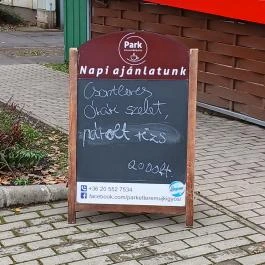 Park
Napi ajánlatunk
Csontleves
Óvári szelet,
párolt rizs
2000 Ft
+36 20 552 7534
facebook.com/parketteremujkigyos/